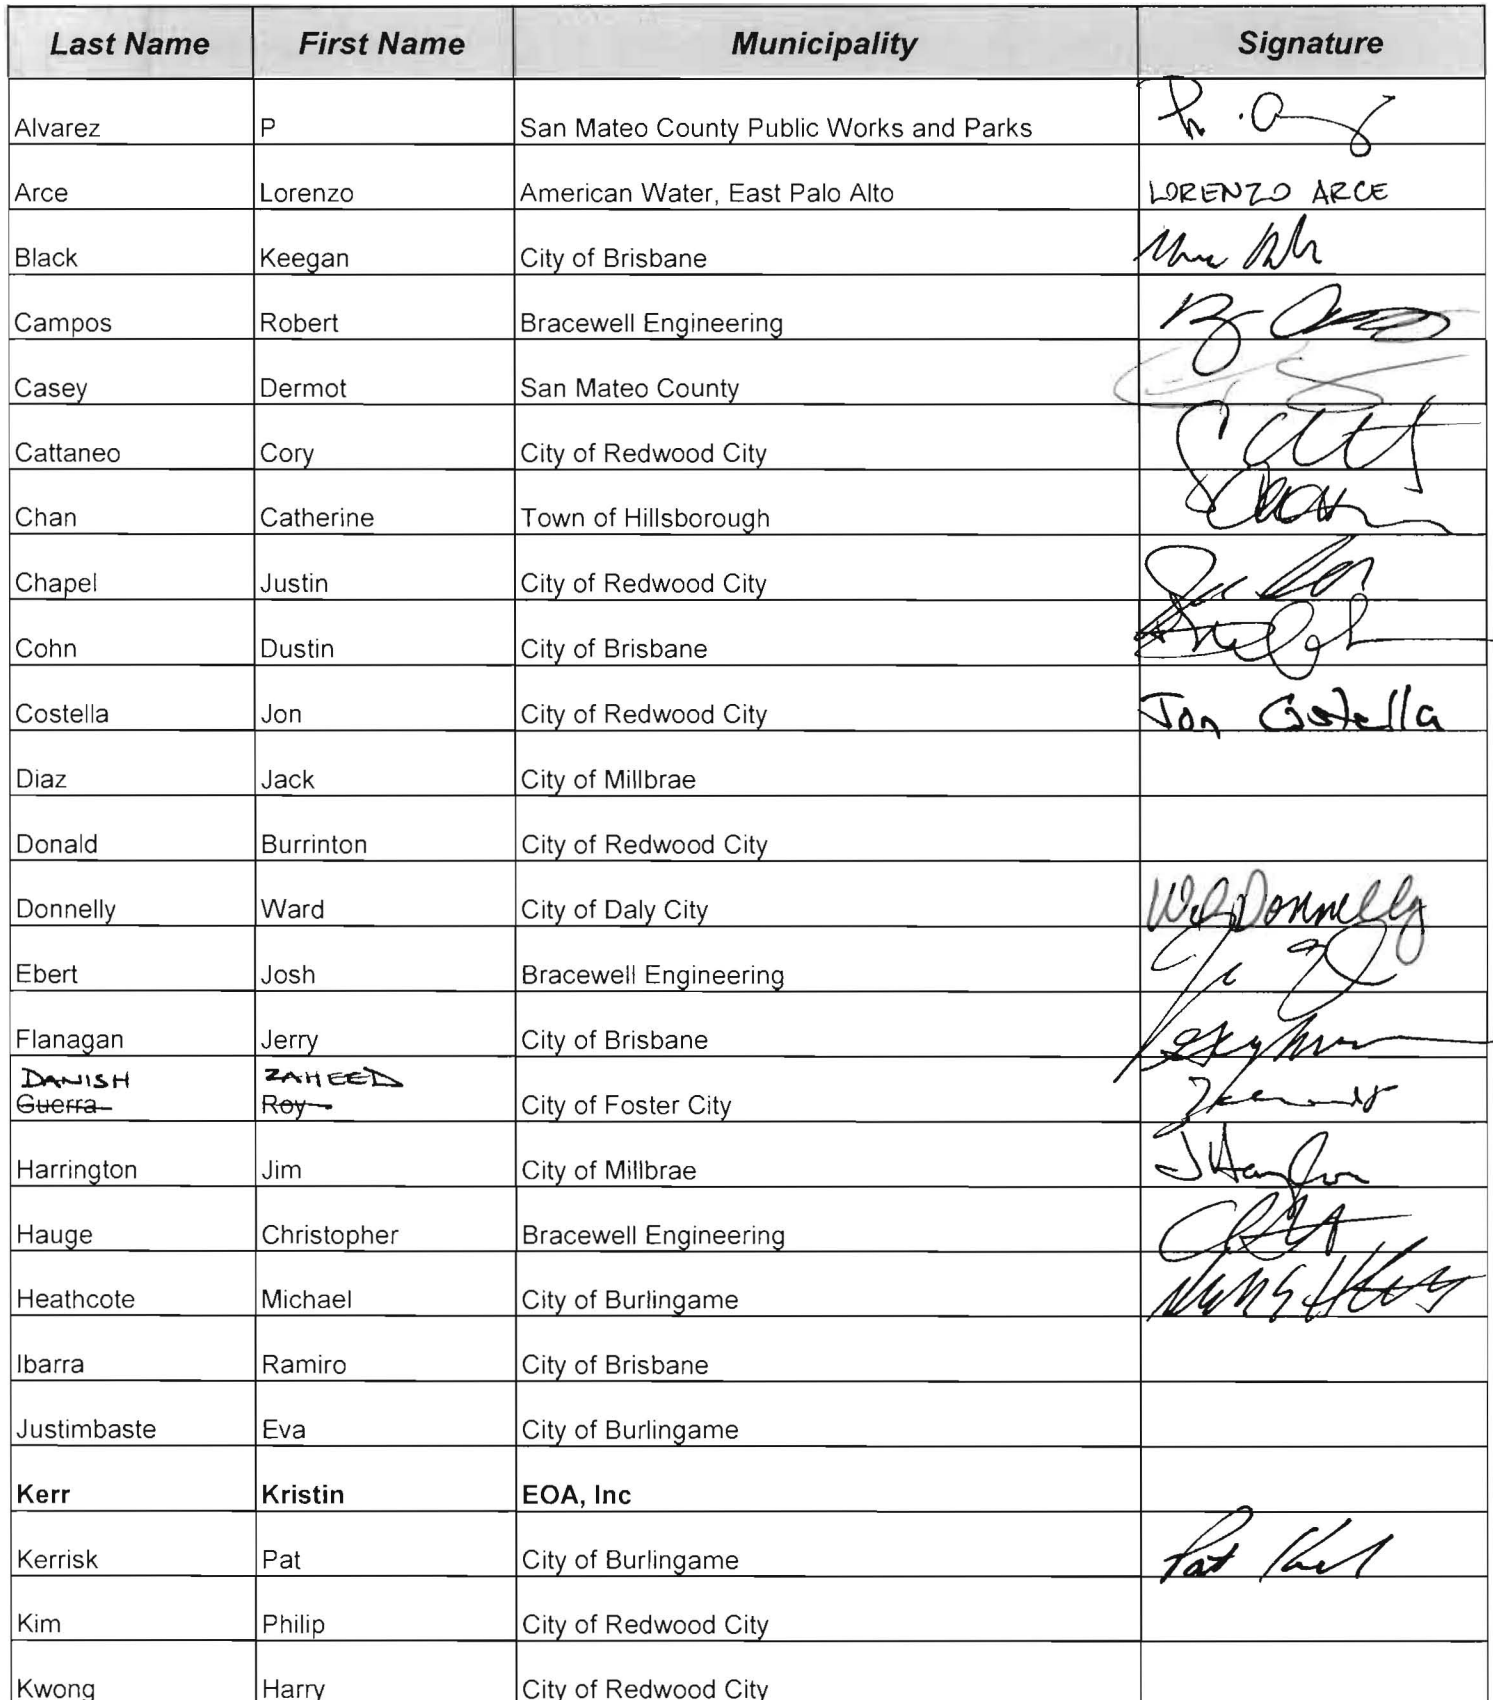 Last Name First Name Municipality Signature
Alvarez P San Mateo County Public Works and Parks
Arce Lorenzo American Water, East Palo Alto LORENZO ARCE
Black Keegan City of Brisbane
Campos Robert Bracewell Engineering
Casey Dermot San Mateo County
Cattaneo Cory City of Redwood City
Chan Catherine Town of Hillsborough
Chapel Justin City of Redwood City
Cohn Dustin City of Brisbane
Costella Jon City of Redwood City Jon Costella
Diaz Jack City of Millbrae
Donald Burrinton City of Redwood City
Donnelly Ward City of Daly City Donnelly
Ebert Josh Bracewell Engineering
Flanagan Jerry City of Brisbane
DANISH ZAHEED
Guerra Roy City of Foster City
Harrington Jim City of Millbrae
Hauge Christopher Bracewell Engineering
Heathcote Michael City of Burlingame
Ibarra Ramiro City of Brisbane
Justimbaste Eva City of Burlingame
Kerr Kristin EOA, Inc
Kerrisk Pat City of Burlingame Pat
Kim Philip City of Redwood City
Kwong Harry City of Redwood City